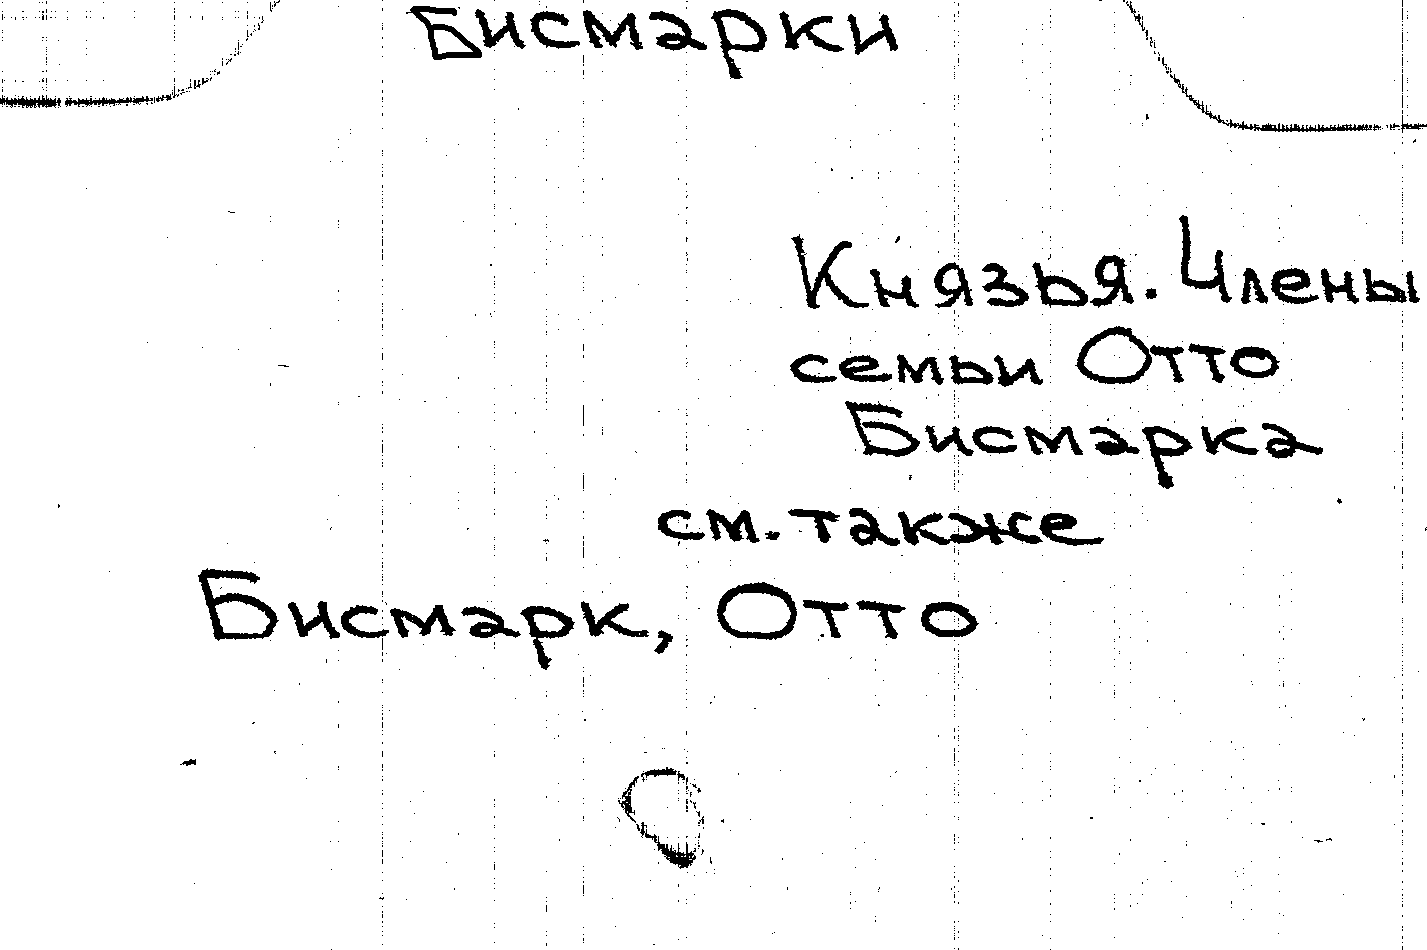 Бисмарки
Князья. Члены
семьи Отто
Бисмарка
см. также
Бисмарк, Отто